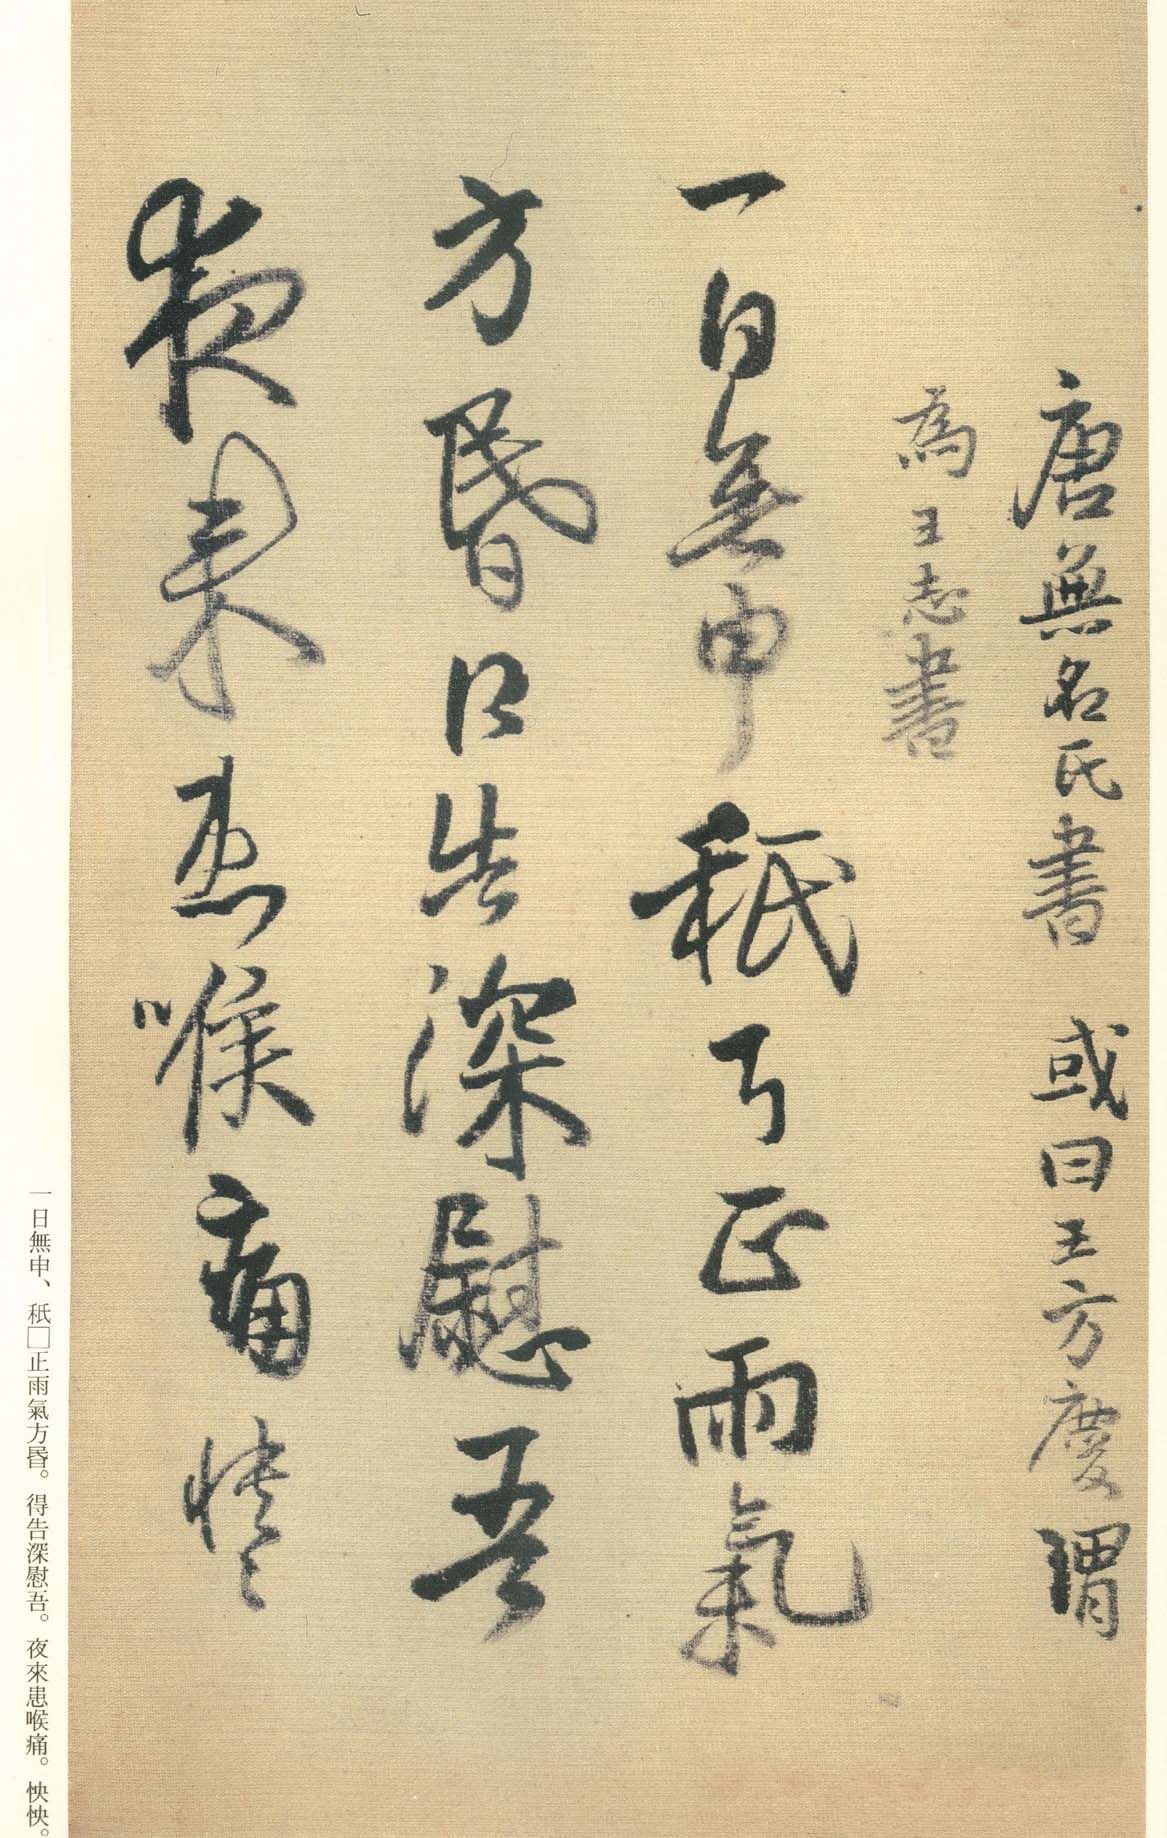 唐無名氏書 或曰王方慶謂
為王志書
一日無申秖正雨氣
方昬得告深慰吾
夜来患喉痛怏〻
一日無申、秖□止雨氣方昬。得告深慰吾。夜來患喉痛。怏怏。